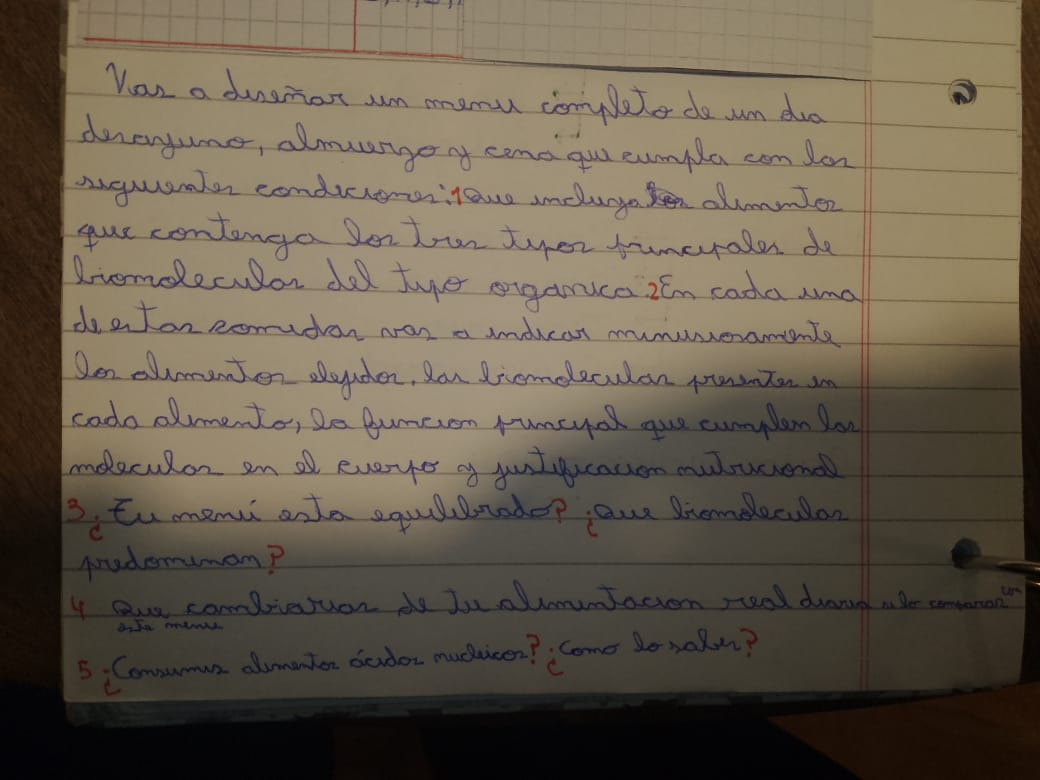 Vas a diseñar un menu completo de un dia
desayuno, almuerzo y cena que cumpla con las
siguientes condiciones: 1 Que incluya alimentos
que contenga los tres tipos principales de
biomoleculas del tipo organica. 2 En cada una
de estas comidas vas a indicar minusiosamente
los alimentos elejidos, las biomoleculas presentes en
cada alimento, la funcion principal que cumplen las
moleculas en el cuerpo y justificacion nutricional
3 ¿Tu menú esta equilibrado? ¿Que biomoleculas
predominan?
4 Que cambiarias de tu alimentacion real diaria si lo comparas con
este menu
5 ¿Consumis alimentos ácidos nucleicos? ¿Como lo sabes?